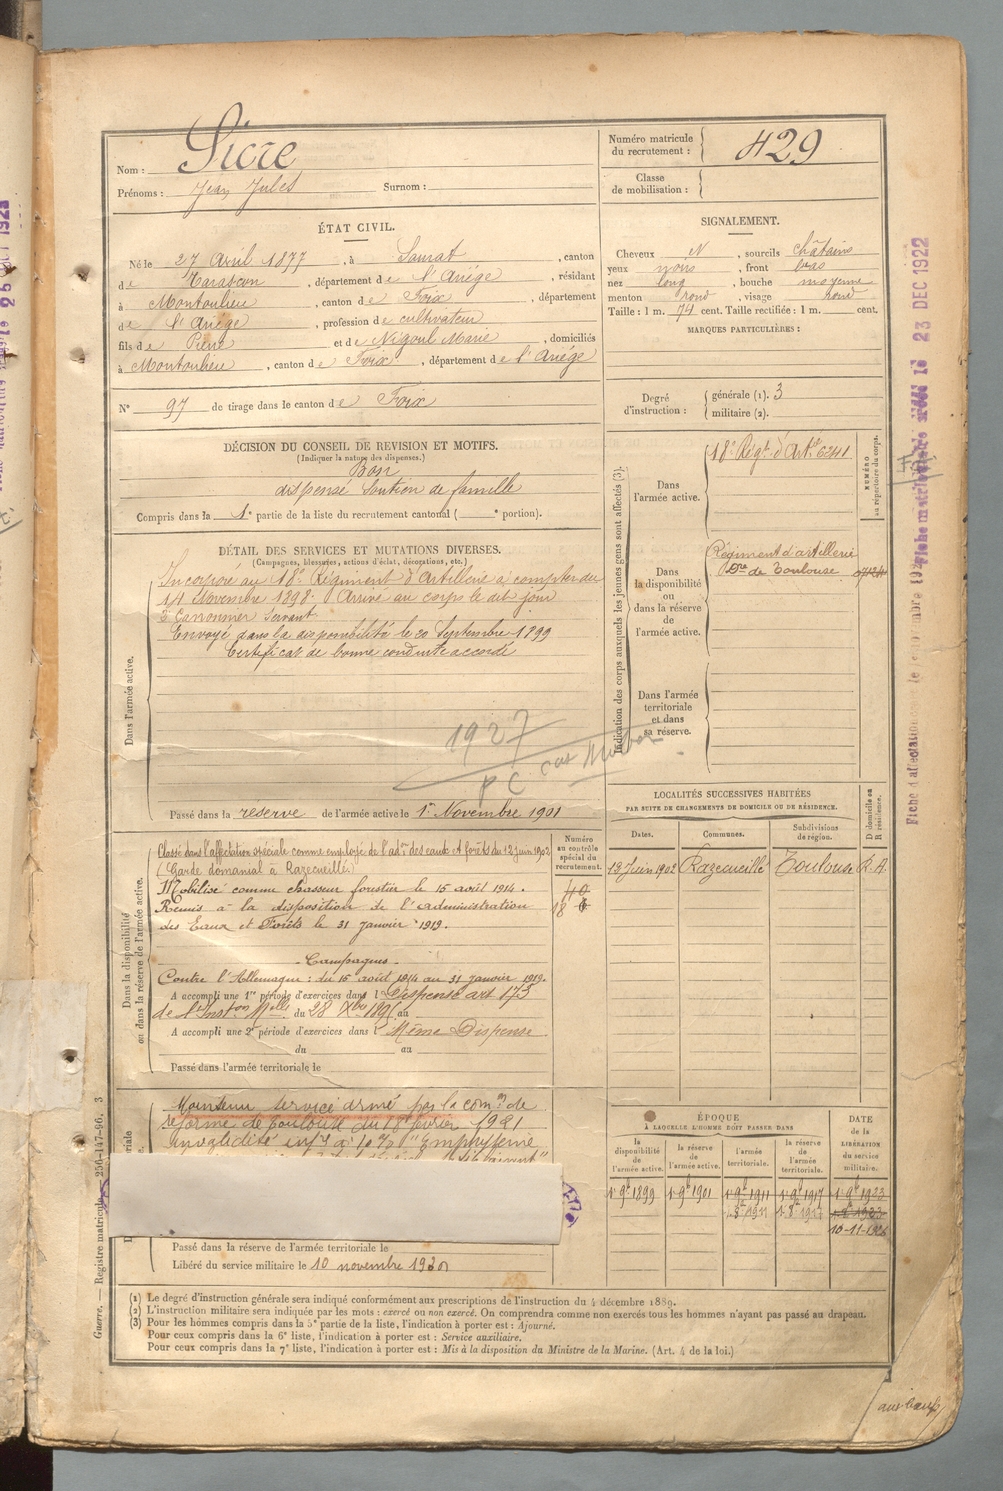 Nom : Sicre
Prénoms : Jean Jules Surnom :
Numéro matricule du recrutement : 429
Classe de mobilisation :
ÉTAT CIVIL.
Né le 27 Avril 1877, à Saurat, canton
de Tarascon, département de l'Ariège, résidant
à Montoulieu, canton de Foix, département
de l'Ariège, profession de cultivateur
fils de Pierre et de Nigoul Marie, domiciliés
à Montoulieu, canton de Foix, département de l'Ariège
N° 97 de tirage dans le canton de Foix
SIGNALEMENT.
Cheveux N, sourcils châtains
yeux noirs, front bas
nez long, bouche moyenne
menton rond, visage rond
Taille : 1 m. 74 cent. Taille rectifiée : 1 m. cent.
MARQUES PARTICULIÈRES :
Degré d'instruction : générale (1). 3
militaire (2).
DÉCISION DU CONSEIL DE REVISION ET MOTIFS.
(Indiquer la nature des dispenses.)
Bon
dispensé Soutien de famille
Compris dans la 1e partie de la liste du recrutement cantonal ( e portion).
DÉTAIL DES SERVICES ET MUTATIONS DIVERSES.
(Campagnes, blessures, actions d'éclat, décorations, etc.)
Dans l'armée active.
Incorporé au 18e Régiment d'Artillerie à compter du
14 Novembre 1898. Arrivé au corps le dit jour
2e Canonnier Servant
Envoyé dans la disponibilité le 20 Septembre 1899
Certificat de bonne conduite accordé
1927
PC
Passé dans la reserve de l'armée active le 1er Novembre 1901
Indication des corps auxquels les jeunes gens sont affectés (3).
Dans l'armée active.
18e Régt d'Artie 6241
NUMÉRO au répertoire du corps.
Dans la disponibilité ou dans la réserve de l'armée active.
Régiment d'artillerie
de Toulouse
Dans l'armée territoriale et dans sa réserve.
LOCALITÉS SUCCESSIVES HABITÉES
PAR SUITE DE CHANGEMENTS DE DOMICILE OU DE RÉSIDENCE.
Dates. Communes. Subdivisions de région. D domicile ou R résidence.
13 Juin 1902 Razecueillé Toulouse R.A.
Dans la disponibilité ou dans la réserve de l'armée active.
Numéro au contrôle spécial du recrutement.
Classé dans l'affectation spéciale comme employé de l'adon des eaux et forêts du 12 juin 1902
(Garde domanial à Razecueillé.)
Mobilisé comme chasseur forestier le 15 août 1914.
Remis à la disposition de l'administration
des Eaux et Forêts le 31 janvier 1919.
Campagnes
Contre l'Allemagne : du 15 août 1914 au 31 janvier 1919.
A accompli une 1re période d'exercices dans l Dispensé art 173
de l'Inston Melle du 28 Xbre 1895 au
A accompli une 2e période d'exercices dans l Même Dispense
du au
Passé dans l'armée territoriale le
Maintenu service armé par la comon de
réforme de Toulouse du 18 février 1921
invalidité infre à 10 % "Emphysème
Passé dans la réserve de l'armée territoriale le
Libéré du service militaire le 10 novembre 1926
ÉPOQUE
A LAQUELLE L'HOMME DOIT PASSER DANS
la disponibilité de l'armée active. la réserve de l'armée active. l'armée territoriale. la réserve de l'armée territoriale. DATE de la LIBÉRATION du service militaire.
1er 9bre 1899 1er 9bre 1901 1er 9bre 1911 1er 9bre 1917 1er 9bre 1923
10-11-1926
(1) Le degré d'instruction générale sera indiqué conformément aux prescriptions de l'instruction du 4 décembre 1889.
(2) L'instruction militaire sera indiquée par les mots : exercé ou non exercé. On comprendra comme non exercés tous les hommes n'ayant pas passé au drapeau.
(3) Pour les hommes compris dans la 5e partie de la liste, l'indication à porter est : Ajourné.
Pour ceux compris dans la 6e liste, l'indication à porter est : Service auxiliaire.
Pour ceux compris dans la 7e liste, l'indication à porter est : Mis à la disposition du Ministre de la Marine. (Art. 4 de la loi.)
Guerre. — Registre matricule. 256-147-96. 3
23 DEC 1922